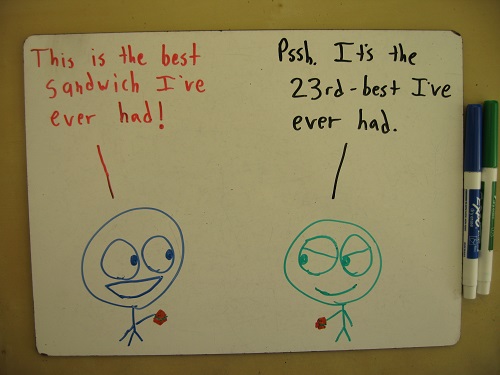 This is the best
sandwich I've
ever had!
Pssh. It's the
23rd-best I've
ever had.
EXPO